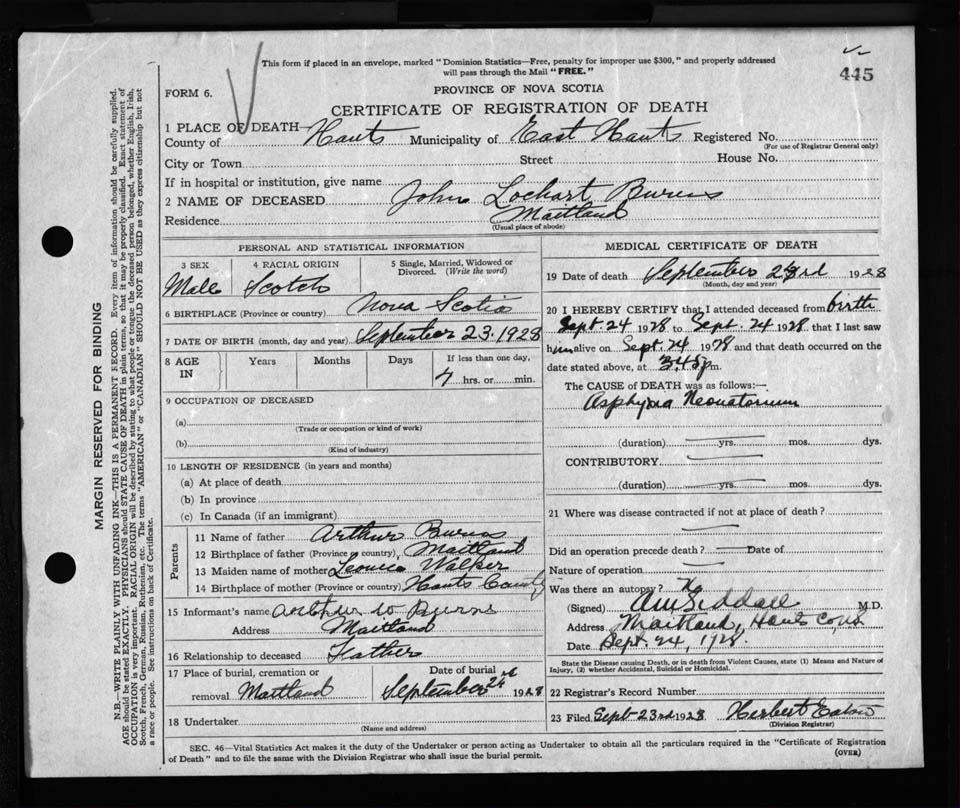 This form if placed in an envelope, marked "Dominion Statistics—Free, penalty for improper use $300," and properly addressed
will pass through the Mail "FREE."
445
FORM 6.
PROVINCE OF NOVA SCOTIA
CERTIFICATE OF REGISTRATION OF DEATH
1 PLACE OF DEATH—
County of Hants Municipality of East Hants Registered No.
(For use of Registrar General only)
City or Town Street House No.
If in hospital or institution, give name
2 NAME OF DECEASED John Lochart Burns
Residence Maitland
(Usual place of abode)
PERSONAL AND STATISTICAL INFORMATION
3 SEX 4 RACIAL ORIGIN 5 Single, Married, Widowed or
Divorced. (Write the word)
Male Scotch
6 BIRTHPLACE (Province or country) Nova Scotia
7 DATE OF BIRTH (month, day and year) September 23, 1928
8 AGE
IN
Years Months Days If less than one day,
7 hrs. or min.
9 OCCUPATION OF DECEASED
(a)
(Trade or occupation or kind of work)
(b)
(Kind of industry)
10 LENGTH OF RESIDENCE (in years and months)
(a) At place of death
(b) In province
(c) In Canada (if an immigrant)
Parents
11 Name of father Arthur Burns
12 Birthplace of father (Province or country), Maitland
13 Maiden name of mother Walker
14 Birthplace of mother (Province or country) Hants County
15 Informant's name Arthur W Burns
Address Maitland
16 Relationship to deceased Father
17 Place of burial, cremation or Date of burial
removal Maitland September 24 1928
18 Undertaker
(Name and address)
MEDICAL CERTIFICATE OF DEATH
19 Date of death September 23rd 1928
(Month, day and year)
20 I HEREBY CERTIFY that I attended deceased from birth
Sept 24 1928 to Sept. 24 1928 that I last saw
him alive on Sept. 24 1928 and that death occurred on the
date stated above, at 3.45 p m.
The CAUSE OF DEATH was as follows:—
Asphyxia Neonatorium
(duration) yrs. mos. dys.
CONTRIBUTORY
(duration) yrs. mos. dys.
21 Where was disease contracted if not at place of death?
Did an operation precede death? Date of
Nature of operation
Was there an autopsy? No
(Signed) Siddall M.D.
Address Maitland, Hants Co, NS
Date Sept. 24, 1928.
State the Disease causing Death, or in death from Violent Causes, state (1) Means and Nature of
Injury, (2) whether Accidental, Suicidal or Homicidal.
22 Registrar's Record Number
23 Filed Sept 23rd 1928 Herbert Eaton
(Division Registrar)
SEC. 46—Vital Statistics Act makes it the duty of the Undertaker or person acting as Undertaker to obtain all the particulars required in the "Certificate of Registration
of Death" and to file the same with the Division Registrar who shall issue the burial permit.
(OVER)
MARGIN RESERVED FOR BINDING
N.B.—WRITE PLAINLY WITH UNFADING INK—THIS IS A PERMANENT RECORD. Every item of information should be carefully supplied.
AGE should be stated EXACTLY. PHYSICIANS should STATE CAUSE OF DEATH in plain terms, so that it may be properly classified. Exact statement of
OCCUPATION is very important. RACIAL ORIGIN will be described by stating to what people or tongue the deceased person belonged, whether English, Irish,
Scotch, French, German, Russian, Ruthenian, etc. The terms "AMERICAN" or "CANADIAN" SHOULD NOT BE USED as they express citizenship but not
a race or people. See instructions on back of Certificate.